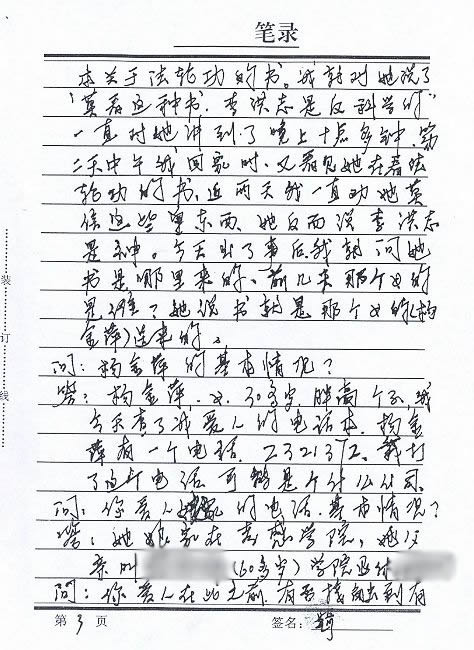 笔录
本关于法轮功的书。我就对她说了
"莫看这种书，李洪志是反科学的"
一直对她讲到了晚上十点多钟，第
二天中午我回家时，又看见她在看法
轮功的书，近两天我一直劝她莫
信这些东西，她反而说李洪志
是神。今天出了事后我就问她
书是哪里来的、前几天那个女的
是谁？她说书就是那个女的(杨
金萍)送来的。
问：杨金萍的基本情况？
答：杨金萍，女，30多岁，胖高个子，我
今天看了我爱人的电话本，杨金
萍有一个电话，我打
了这个电话可能是个什么公司。
问：你爱人的电话，基本情况？
答：她娘家在孝感学院，她父
亲叫 (60多岁) 学院退休
问：你爱人在此之前，有否接触到有
装
订
线
第 3 页
签名：